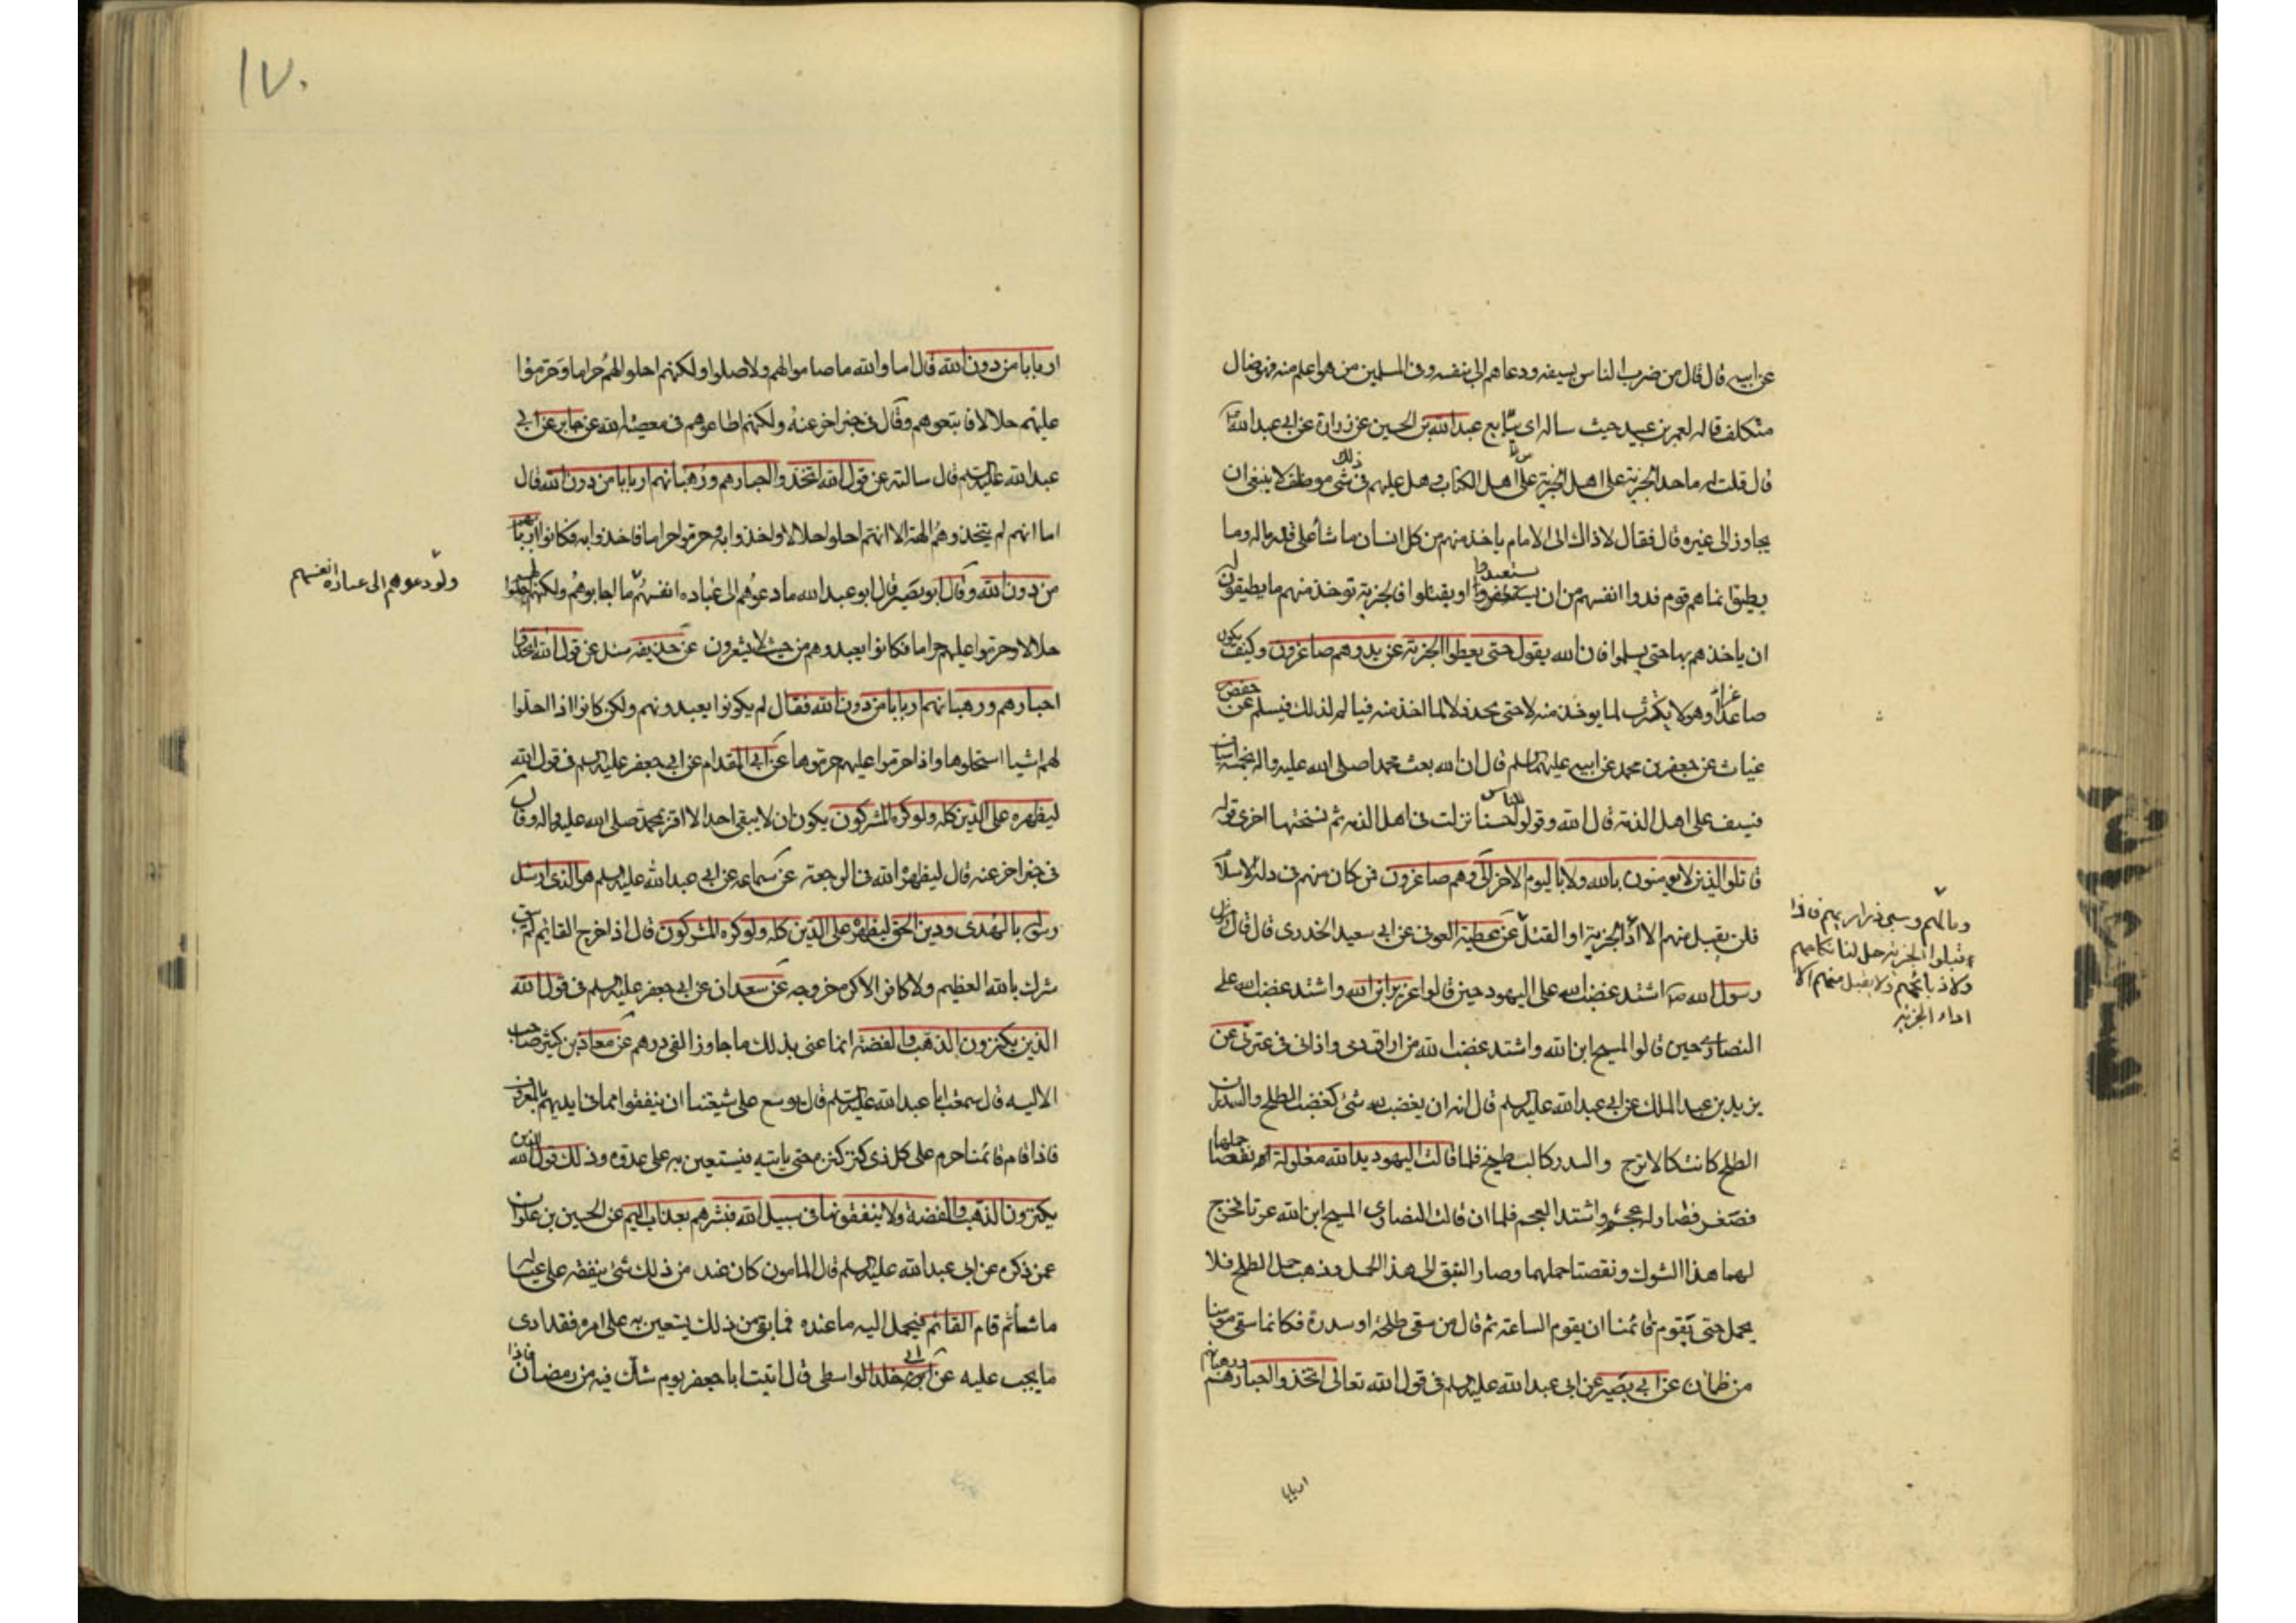 عن ابيه قال قال من ضرب الناس بسيفه ودعاهم الى نفسه وفي المسلمين من هو اعلم منه فهو ضال
متكلف قاله لعمرو بن عبيد حيث ساله ان يبايع عبد الله بن الحسين عن زرارة عن ابي عبد الله
قال قلت له ما حد الجزية على اهل الجزية على اهل الكتاب وهل عليهم في ذلك شي موظف لا ينبغي ان
يجاوز الى غيره قال فقال لا ذاك الى الامام ياخذ منهم من كل انسان ما شاء على قدر ماله وما
يطيق انما هم قوم فدوا انفسهم من ان يستعبدوا او يقتلوا فالجزية توخذ منهم ما يطيقون له
ان ياخذهم بها حتى يسلموا فان الله يقول حتى يعطوا الجزية عن يد وهم صاغرون وكيف يكون
صاغرا وهو لا يكترث لما يوخذ منه لا حتى يجد ذلا لما اخذ منه فيالم لذلك فيسلم عن حفص
غياث عن جعفر بن محمد عن ابيه عليهما السلم قال ان الله بعث محمدا صلى الله عليه واله بخمسة اسياف
فسيف على اهل الذمة قال الله وقولوا للناس حسنا نزلت في اهل الذمه ثم نسختها اخرى قوله
قاتلوا الذين لا يومنون بالله ولا باليوم الاخر الى وهم صاغرون فمن كان منهم في دار الاسلام
فلن يقبل منهم الا اداء الجزية او القتل عن عطية العوفي عن ابي سعيد الخدري قال قال
رسول الله ص اشتد غضب الله على اليهود حين قالوا عزير ابن الله واشتد غضب الله على
النصارى حين قالوا المسيح ابن الله واشتد غضب الله من اراق دمي واذاني في عترتي عن
يزيد بن عبد الملك عن ابي عبد الله عليه السلم قال انه لن يغضب لله شئ كغضب الطلح والسدر ان
الطلح كانت كالاترج والسدر كالبطيخ فلما قالت اليهود يد الله مغلولة نقصا حملها
فصغر فصار له عجم واشتد العجم فلما ان قالت النصارى المسيح ابن الله عرتا فخرج
لهما هذا الشوك ونقصتا حملهما وصار النبق الى هذا الحمل وذهب حمل الطلح فلا
يحمل حتى يقوم قائمنا ان يقوم الساعة ثم قال من سقى طلحة او سدرة فكانما سقى مومنا
من ظماء عن ابي بصير عن ابي عبد الله عليه السلم في قول الله تعالى اتخذوا احبارهم ورهبانهم
اربابا
ومالهم وسبي ذراريهم فاذا
قبلوا الجزية حل لنا نكاحهم
ولا ذبائحهم ولا يقبل منهم الا
اداء الجزية
١٧٠
اربابا من دون الله قال اما والله ما صاموا لهم ولا صلوا ولكنهم احلوا لهم حراما وحرموا
عليهم حلالا فاتبعوهم وقال في خبر اخر عنه ولكنهم اطاعوهم في معصية الله عن جابر عن ابي
عبد الله عليه السلم قال سالته عن قول الله اتخذوا احبارهم ورهبانهم اربابا من دون الله قال
اما انهم لم يتخذوهم الهة الا انهم احلوا حلالا واخذوا به وحرموا حراما فاخذوا به فكانوا اربابهم
من دون الله وقال ابو بصير قال ابو عبد الله ما دعوهم الى عبادة انفسهم ما اجابوهم ولكنهم احلوا لهم
حلالا وحرموا عليهم حراما فكانوا يعبدوهم من حيث لا يشعرون عن حذيفه سئل عن قول الله اتخذوا
احبارهم ورهبانهم اربابا من دون الله فقال لم يكونوا يعبدونهم ولكن كانوا اذا احلوا
لهم اشيا استحلوها واذا حرموا عليهم حرموها عن ابي المقدام عن ابي جعفر عليه السلم في قول الله
ليظهره على الدين كله ولو كره المشركون يكون ان لا يبقى احد الا اقر بمحمد صلى الله عليه واله وقال
في خبر اخر عنه قال ليظهره الله في الرجعة عن سماعه عن ابي عبد الله عليه السلم هو الذي ارسل
رسوله بالهدى ودين الحق ليظهره على الدين كله ولو كره المشركون قال اذا خرج القائم لم يبق
مشرك بالله العظيم ولا كافر الا كره خروجه عن سعدان عن ابي جعفر عليه السلم في قول الله
الذين يكنزون الذهب والفضة انما عنى بذلك ما جاوز الفي درهم عن معاذ بن كثير صاحب
الاليسه قال سمعت ابا عبد الله عليه السلم قال موسع على شيعتنا ان ينفقوا مما في ايديهم بالمعروف
فاذا قام قائمنا حرم على كل ذي كنز كنزه حتى ياتيه فيستعين به على عدوه وذلك قول الله الذين
يكنزون الذهب والفضة ولا ينفقونها في سبيل الله فبشرهم بعذاب اليم عن الحسين بن علوان
عمن ذكره عن ابي عبد الله عليه السلم قال المامون كان عنده من ذلك شئ ينفقه على عياله
ما شاء ثم قام القائم فيحمل اليه ما عنده فما بقي من ذلك يستعين به على امره فقد ادى
ما يجب عليه عن ابي خلد الواسطي قال اتيت ابا جعفر يوم شك فيه من رمضان فاذا
ولو دعوهم الى عبادة انفسهم